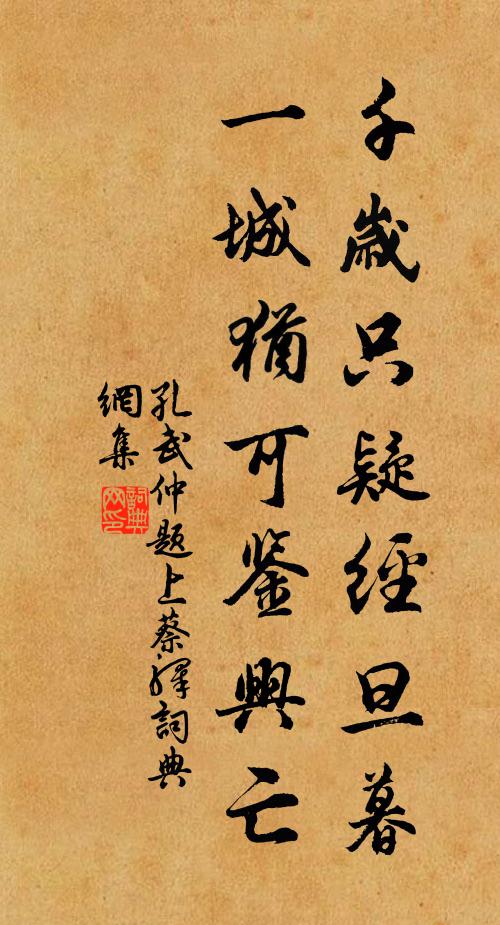 千歲只疑經旦暮
一城猶可鑒興亡
孔武仲題上蔡驛詞典
網集
詞典網印